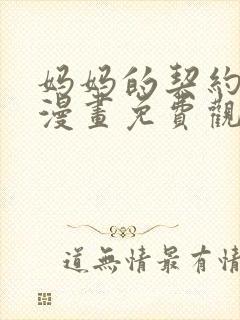 妈妈的契约
漫畫免費觀
道無情最有情